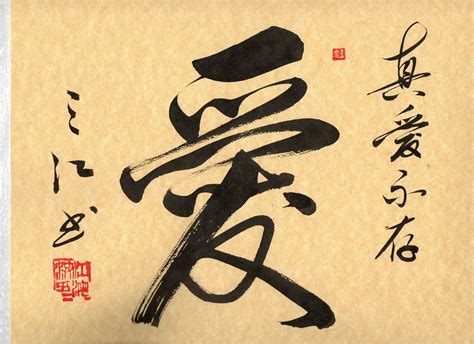 真爱永存
爱
三江书